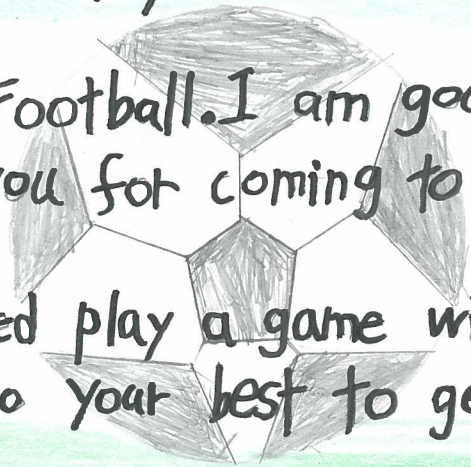 Football. I am goo
you for coming to
ed play a game wi
o your best to ge